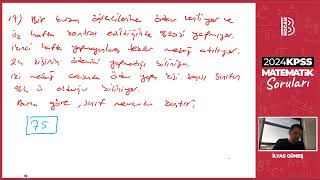 19) Bir kursun öğrencilerine ödev veriliyor ve
ilk hafta kontrol edildiğinde %20si yapmıyor.
ikinci hafta yapmayanlara tekrar mesaj atılıyor.
24 kişinin ödevini yapmadığı biliniyor.
iki mesaj arasında ödev yapan kişi sayısı sınıfın
olduğu biliniyor.
Buna göre, sınıf mevcudu kaçtır?
75
B
2024 KPSS
MATEMATİK
Soruları
İLYAS GÜNEŞ